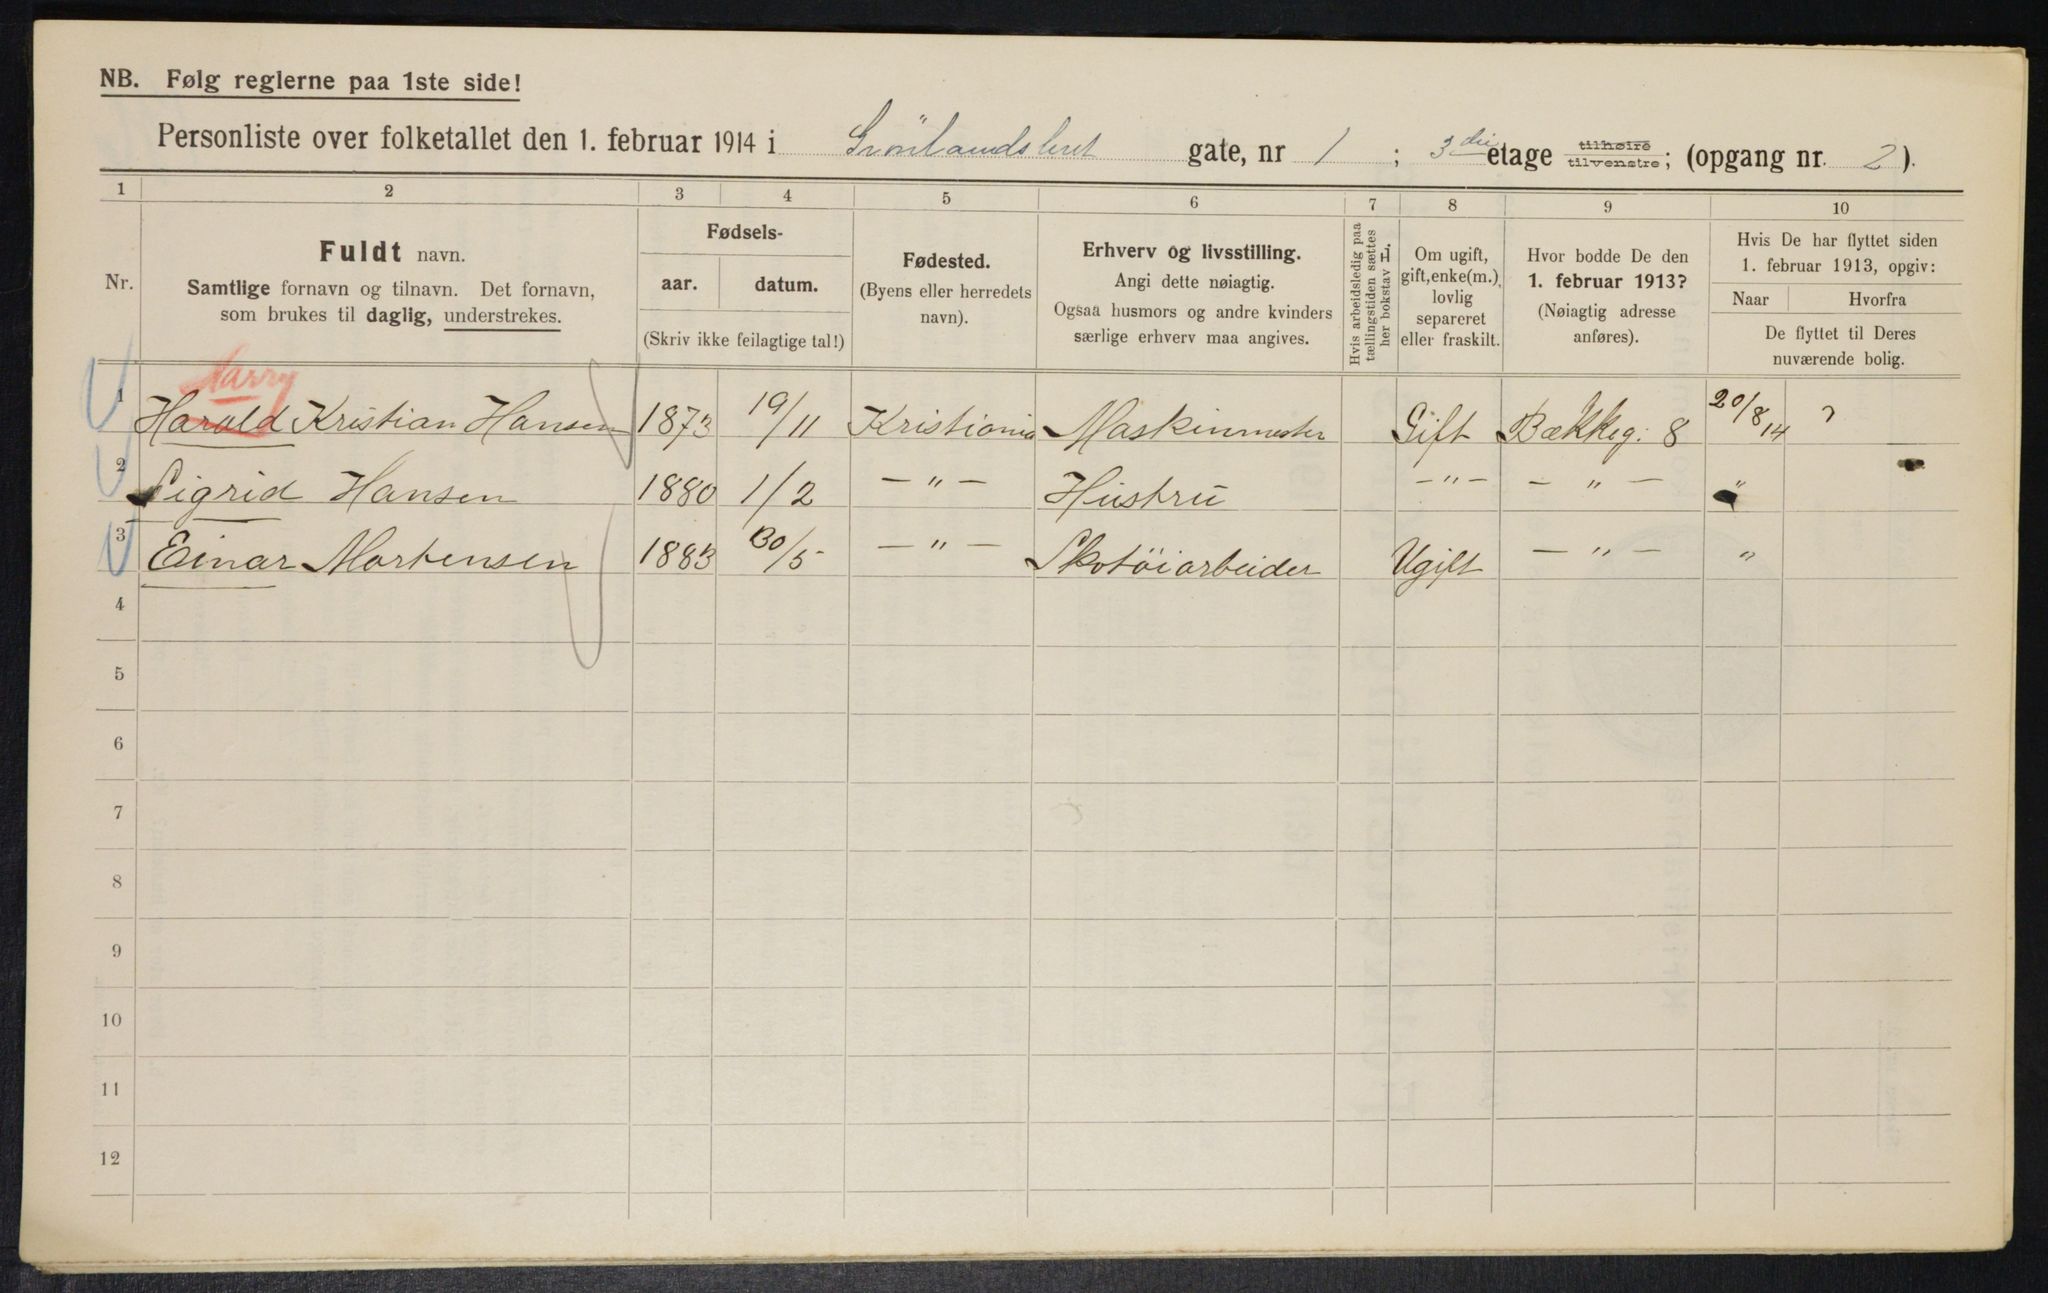 NB. Følg reglerne paa 1ste side!
Personliste over folketallet den 1. februar 1914 i Grönlandsleret gate, nr 1 ; 3die etage tilhøire tilvenstre; (opgang nr. 2).
1 2 3 4 5 6 7 8 9 10
Nr.
Fuldt navn.
Samtlige fornavn og tilnavn. Det fornavn,
som brukes til daglig, understrekes.
Fødsels-
aar. datum.
(Skriv ikke feilagtige tal!)
Fødested.
(Byens eller herredets
navn).
Erhverv og livsstilling.
Angi dette nøiagtig.
Ogsaa husmors og andre kvinders
særlige erhverv maa angives.
Hvis arbeidsledig paa
tællingstiden sættes
her bokstav L.
Om ugift,
gift, enke(m.),
lovlig
separeret
eller fraskilt.
Hvor bodde De den
1. februar 1913?
(Nøiagtig adresse
anføres).
Hvis De har flyttet siden
1. februar 1913, opgiv:
Naar Hvorfra
De flyttet til Deres
nuværende bolig.
Harry
1 Harald Kristian Hansen 1873 19/11 Kristiania Maskinmester Gift Bækkeg: 8 20/8 14 ?
2 Sigrid Hansen 1880 1/2 — " — Hustru — " — — " — "
3 Einar Mortensen 1883 30/5 — " — Skotöiarbeider Ugift — " — "
4
5
6
7
8
9
10
11
12